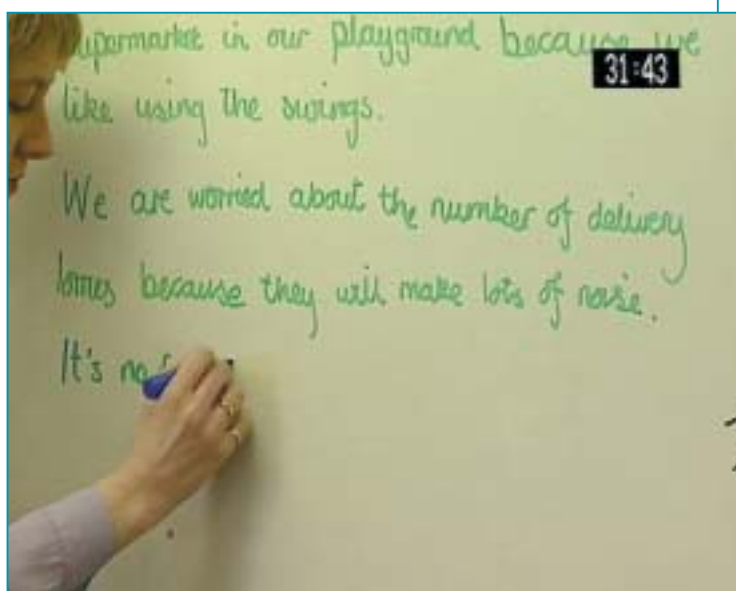 supermarket in our playground because we
31:43
like using the swings.
We are worried about the number of delivery
lorries because they will make lots of noise.
It's